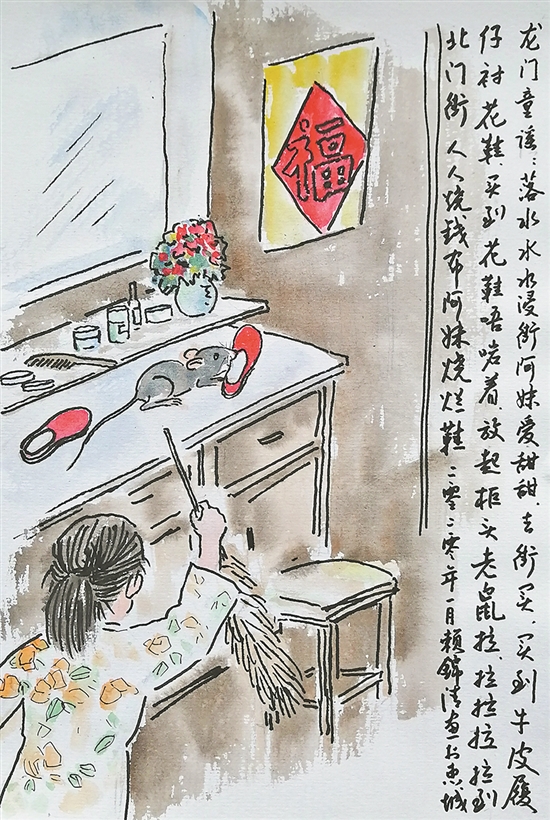 龙门童谣：落水水水浸街阿妹爱甜甜、去街买、买到牛皮履
仔衬花鞋、买到花鞋唔啱着、放起柜头老鼠拉、拉拉拉拉到
北门街人人烧钱布阿妹烧烂鞋二零二零年一月赖锦清画於惠城
福